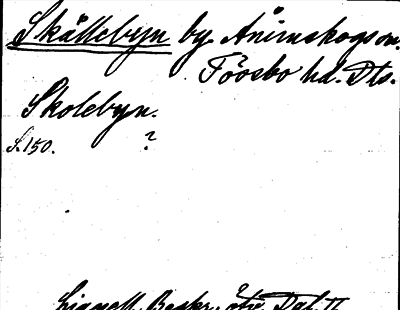 Skällebyn by Ånimskogs sn.
Tössbo hd. Dls.
Skolebyn.
S. 150. ?
Lignell, Beskr. Dal. II